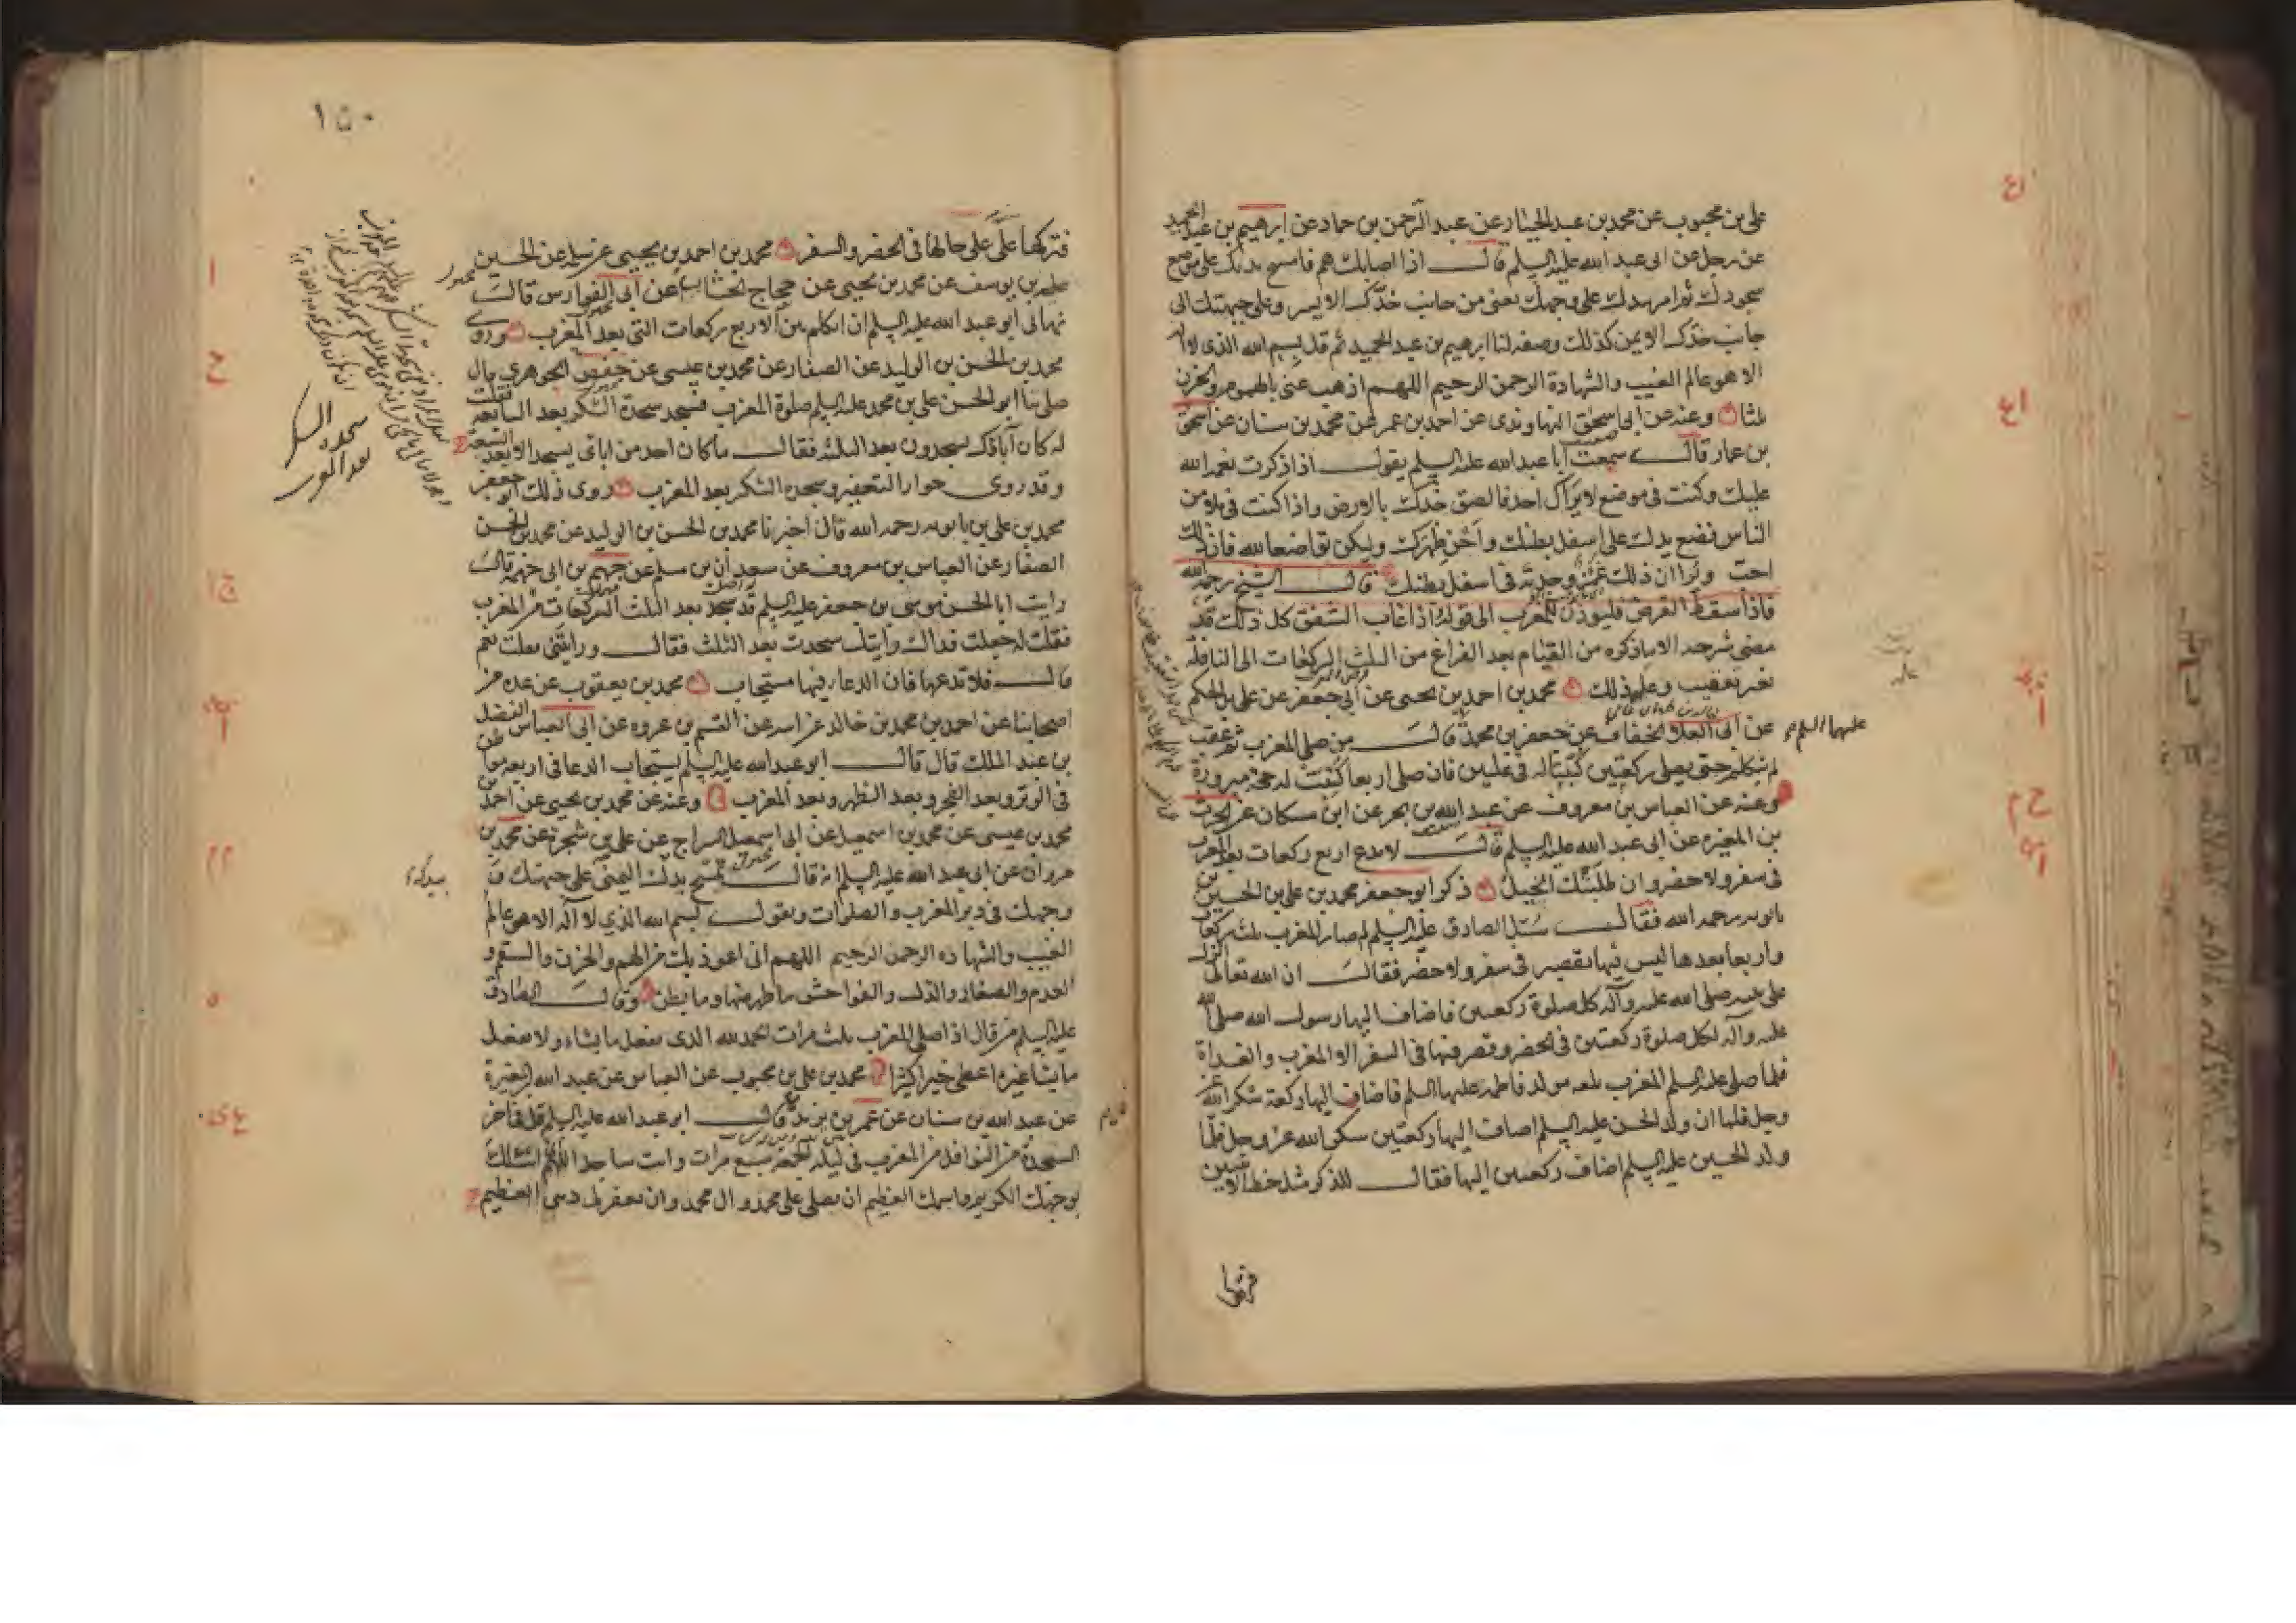 على بن محبوب عن محمد بن عبد الجبار عن عبد الرحمن بن حماد عن ابرهيم بن عبد الحميد
عن رجل عن ابى عبد الله عليه السلم قال اذا اصابك هم فامسح يدك على موضع
سجودك ثم امر يدك على وجهك يعنى من جانب خدك الايسر وعلى جبهتك الى
جانب خدك الايمن كذلك وصفه لنا ابرهيم بن عبد الحميد ثم قل بسم الله الذى لا اله
الا هو عالم الغيب والشهادة الرحمن الرحيم اللهم اذهب عنى بالهم والحزن
ثلثا وعنه عن ابى اسحق النهاوندى عن احمد بن عمر عن محمد بن سنان عن اسحق
بن عمار قال سمعت ابا عبد الله عليه السلم يقول اذا ذكرت نعمه الله
عليك وكنت فى موضع لا يراك احد فالصق خدك بالارض واذا كنت فى ملا من
الناس فضع يدك على اسفل بطنك واحن ظهرك وليكن تواضعا لله فان ذلك
احب وترا ان ذلك غمز وجدته فى اسفل بطنك قال الشيخ رحمه الله
فاذا سقط القرص فليوذن للمغرب الى قوله اذا غاب الشفق كل ذلك قد
مضى شرحه الا ما ذكره من القيام بعد الفراغ من الثلث الركعات الى النافلة
بغير تعقيب وعلة ذلك محمد بن احمد بن يحيى عن ابى جعفر عن على بن الحكم
عن ابى العلاء الخفاف عن جعفر بن محمد قال من صلى المغرب ثم عقب
عليهما السلم
لم يتكلم حتى يصلى ركعتين كتبتا له فى عليين فان صلى اربعا كتبت له حجة مبرورة
وعنه عن العباس بن معروف عن عبد الله بن بحر عن ابن مسكان عن الحرث
بن المغيره عن ابى عبد الله عليه السلم قال لا تدع اربع ركعات بعد المغرب
فى سفر ولا حضر وان طلبتك الخيل ذكر ابو جعفر محمد بن على بن الحسين بن
بابويه رحمه الله فقال سئل الصادق عليه السلم لم صار المغرب ثلث ركعات
واربعا بعدها ليس فيها تقصير فى سفر ولا حضر فقال ان الله تعالى انزل
على نبيه صلى الله عليه وآله كل صلوة ركعتين فاضاف اليها رسول الله صلى الله
عليه وآله لكل صلوة ركعتين فى الحضر وقصر فيها فى السفر الا المغرب والغداة
فلما صلى عليه السلم المغرب بلغه مولد فاطمه عليها السلم فاضاف اليها ركعة شكرا لله عز
وجل فلما ان ولد الحسن عليه السلم اضاف اليها ركعتين شكرا لله عز وجل فلما
ولد الحسين عليه السلم اضاف ركعتين اليها فقال للذكر مثل حظ الانثيين
فتركها
١٥٠
فتركها على حالها فى الحضر والسفر محمد بن احمد بن يحيى عن سلمه عن الحسين
بن يوسف عن محمد بن يحيى عن حجاج الخشاب عن ابى الفوارس قال
نهانى ابو عبد الله عليه السلم ان اتكلم بين الاربع ركعات التى بعد المغرب وروى
محمد بن الحسن بن الوليد عن الصفار عن محمد بن عيسى عن حفص الجوهرى قال
صلى بنا ابو الحسن على بن محمد عليه السلم صلوة المغرب فسجد سجدة الشكر بعد السابعه فقلت
له كان آباؤك يسجدون بعد الثلثه فقال ما كان احد من ابائى يسجد الا بعد السبعة
وقد روى جواز التعفير وسجده الشكر بعد المغرب روى ذلك ابو جعفر
محمد بن على بن بابويه رحمه الله قال اخبرنا محمد بن الحسن بن الوليد عن محمد بن الحسن
الصفار عن العباس بن معروف عن سعدان بن مسلم عن جهم بن ابى جهمه قال
رايت ابا الحسن موسى بن جعفر عليه السلم قد سجد بعد الثلث الركعات من المغرب
فقلت له جعلت فداك رايتك سجدت بعد الثلث فقال ورايتنى فقلت نعم
قال فلا تدعها فان الدعاء فيها مستجاب محمد بن يعقوب عن عدة من
اصحابنا عن احمد بن محمد بن خالد عن ابيه عن القسم بن عروه عن ابى العباس الفضل
بن عبد الملك قال قال ابو عبد الله عليه السلم يستجاب الدعا فى اربعه مواطن
فى الوتر وبعد الفجر وبعد الظهر وبعد المغرب وعنه عن محمد بن يحيى عن احمد بن
محمد بن عيسى عن محمد بن اسمعيل عن ابى اسمعيل السراج عن على بن شجرة عن محمد بن
مروان عن ابى عبد الله عليه السلم انه قال تمسح بيدك اليمنى على جبهتك و
وجهك فى دبر المغرب والصلوات وتقول بسم الله الذى لا اله الا هو عالم
الغيب والشهاده الرحمن الرحيم اللهم انى اعوذ بك من الهم والحزن والسقم و
العدم والصغار والذل والفواحش ما ظهر منها وما بطن وقال الصادق
عليه السلم من قال اذا صلى المغرب ثلث مرات الحمد لله الذى يفعل ما يشاء ولا يفعل
ما يشا غيره اعطى خيرا كثيرا محمد بن على بن محبوب عن العباس عن عبد الله بن المغيرة
عن عبد الله بن سنان عن عمر بن يزيد قال ابو عبد الله عليه السلم قل فى اخر
السجدة من النوافل من المغرب فى ليله الجمعه سبع مرات وانت ساجد اللهم انى اسئلك
بوجهك الكريم واسمك العظيم ان تصلى على محمد وال محمد وان تغفر لى ذنبى العظيم
سجده الشكر
بعد المغرب